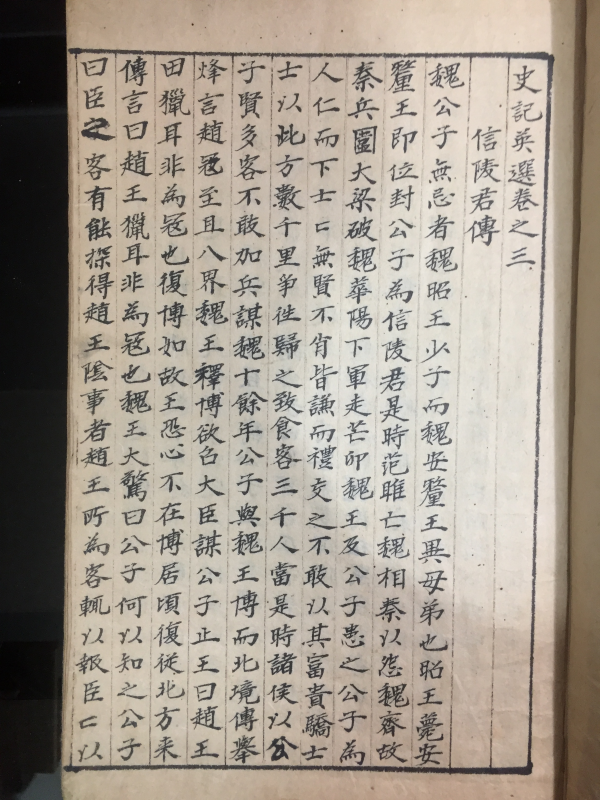 史記英選卷之三
信陵君傳
魏公子無忌者魏昭王少子而魏安釐王異母弟也昭王薨安
釐王即位封公子為信陵君是時范雎亡魏相秦以怨魏齊故
秦兵圍大梁破魏華陽下軍走芒卯魏王及公子患之公子為
人仁而下士匕無賢不肖皆謙而禮交之不敢以其富貴驕士
士以此方數千里爭徃歸之致食客三千人當是時諸侯以公
子賢多客不敢加兵謀魏十餘年公子與魏王博而北境傳舉
烽言趙冦至且入界魏王釋博欲召大臣謀公子止王曰趙王
田獵耳非為冦也復博如故王恐心不在博居頃復從北方来
傳言曰趙王獵耳非為冦也魏王大驚曰公子何以知之公子
曰臣之客有能探得趙王陰事者趙王所為客輒以報臣匕以